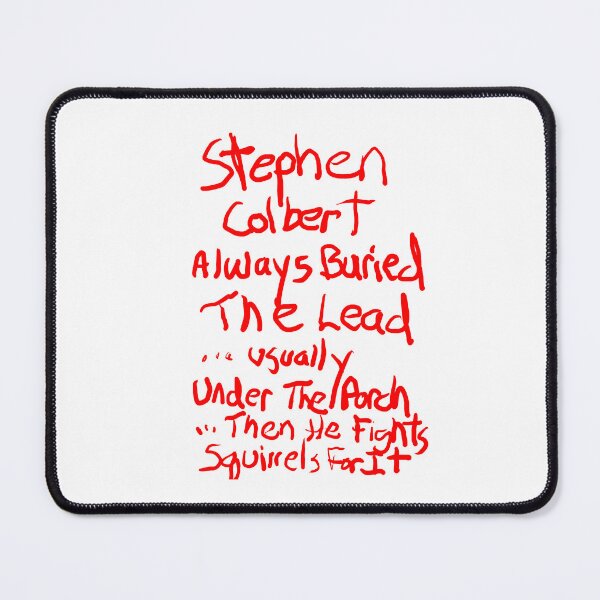 Stephen
Colbert
Always Buried
The Lead
... usually
Under The Porch
... Then He Fights
Squirrels For It